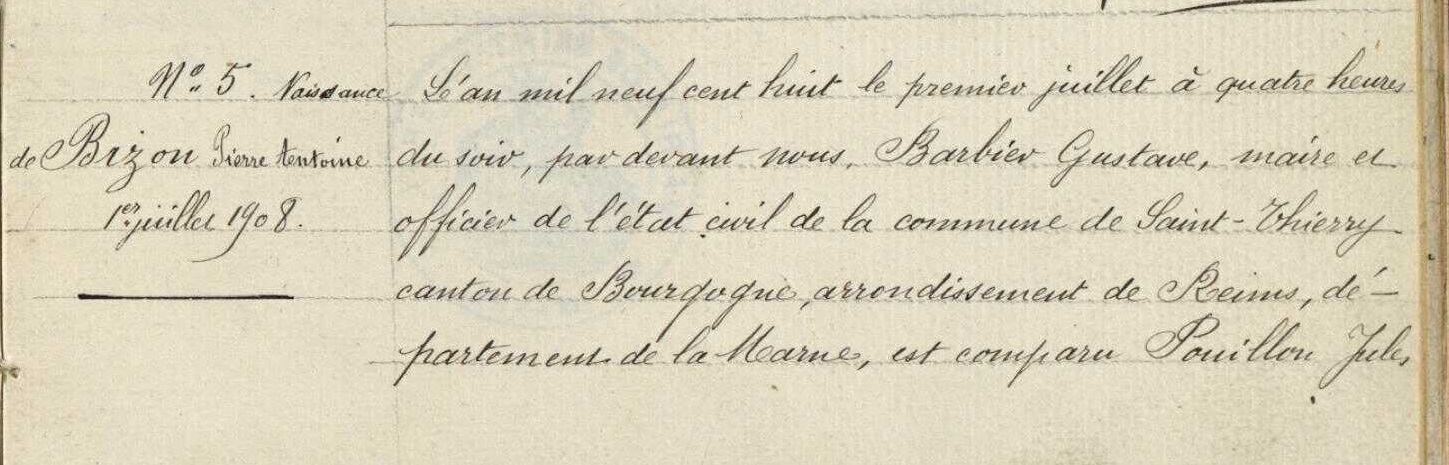 N° 5. Naissance
de Bizon Pierre Antoine
1er juillet 1908.
L'an mil neuf cent huit le premier juillet à quatre heures
du soir, par devant nous, Barbier Gustave, maire et
officier de l'état civil de la commune de Saint-Thierry
canton de Bourgogne, arrondissement de Reims, dé-
partement de la Marne, est comparu Pouillon Jules